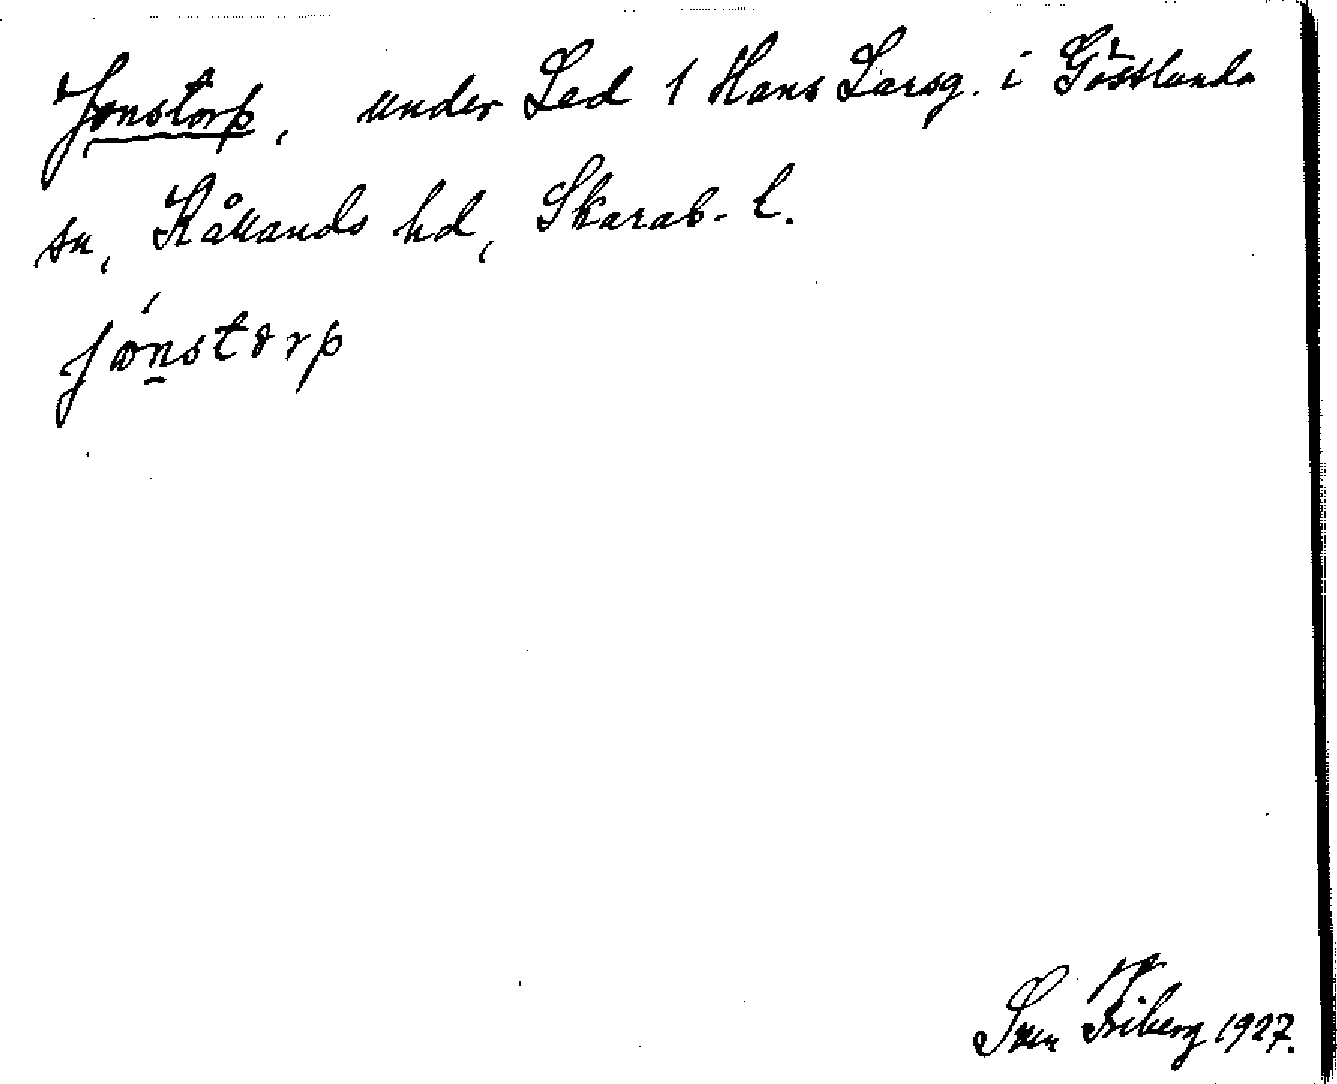 Jonstorp, under Led 1 Hans Larsg. i Gösslunda
sn, Kållands hd, Skarab. l.
Sven Friberg 1927.